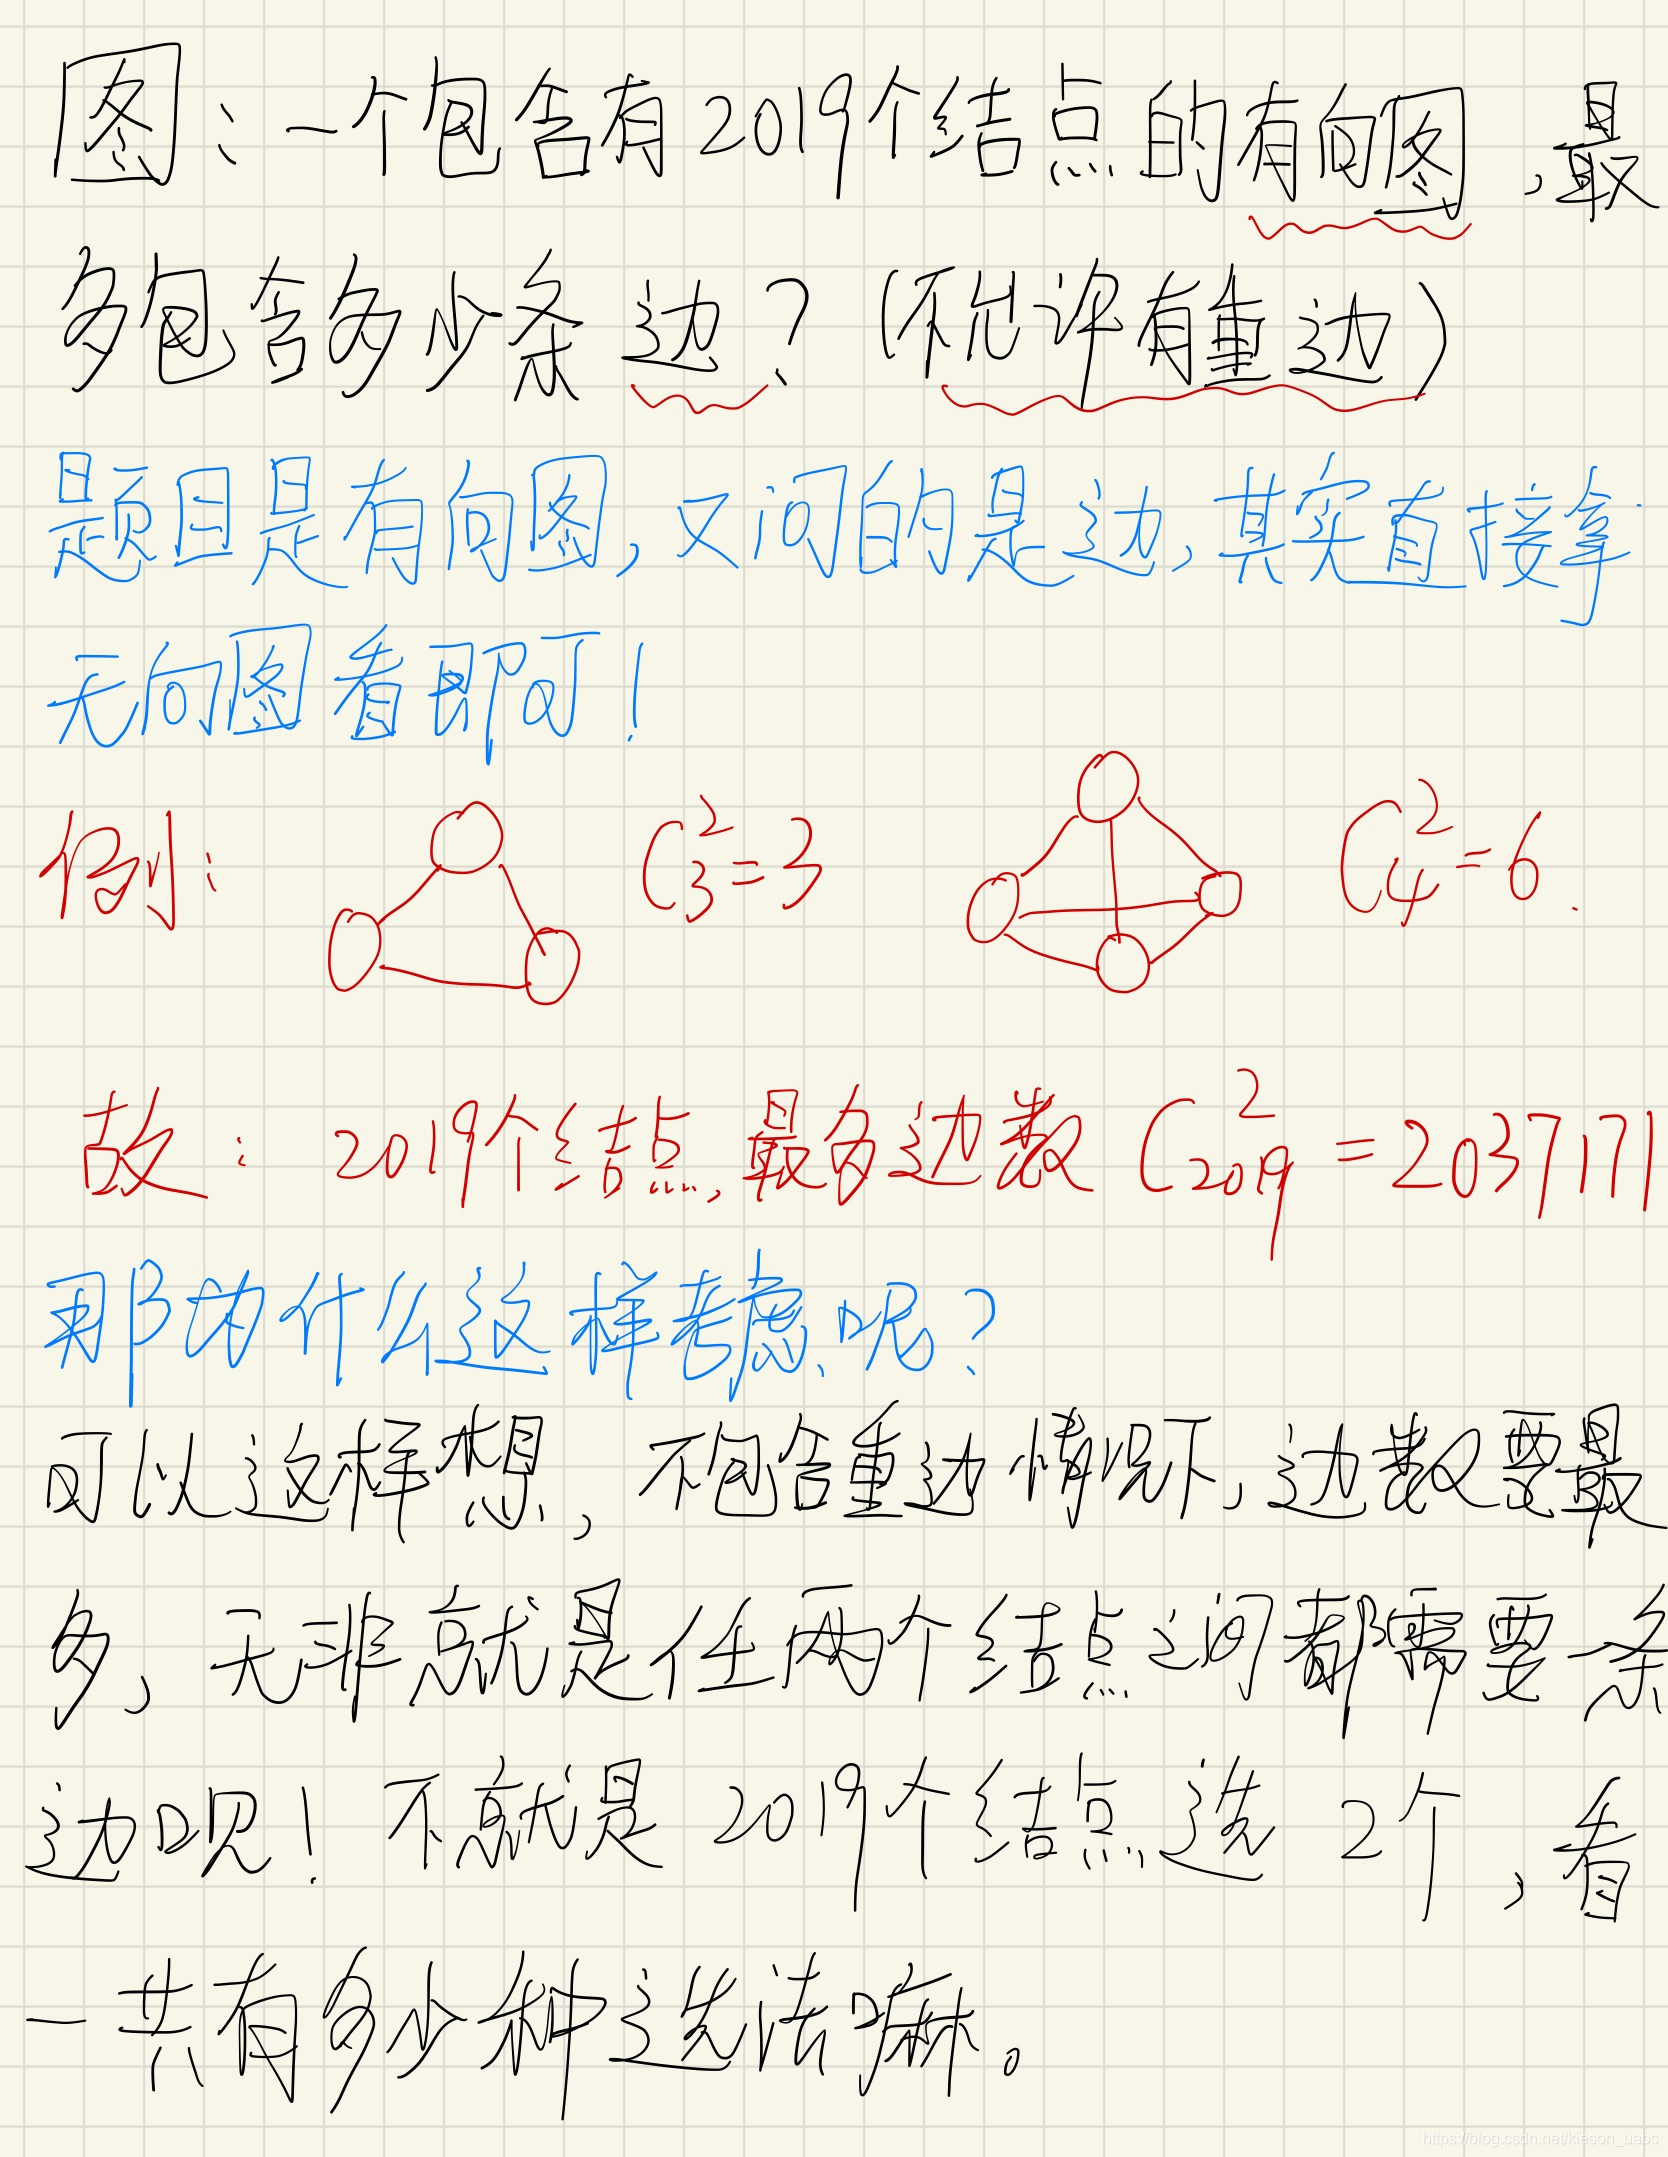 图：一个包含有2019个结点的有向图，最
多包含多少条边？(不允许有重边)
题目是有向图，又问的是边，其实直接拿
无向图看即可！
例： C₃²=3 C₄²=6.
故：2019个结点，最多边数 C₂₀₁₉² = 2037171
那为什么这样考虑呢？
可以这样想，不包含重边情况下，边数要最
多，无非就是任两个结点之间都需要一条
边呗！不就是2019个结点选2个，看
一共有多少种选法嘛。
https://blog.csdn.net/kleson_uabc